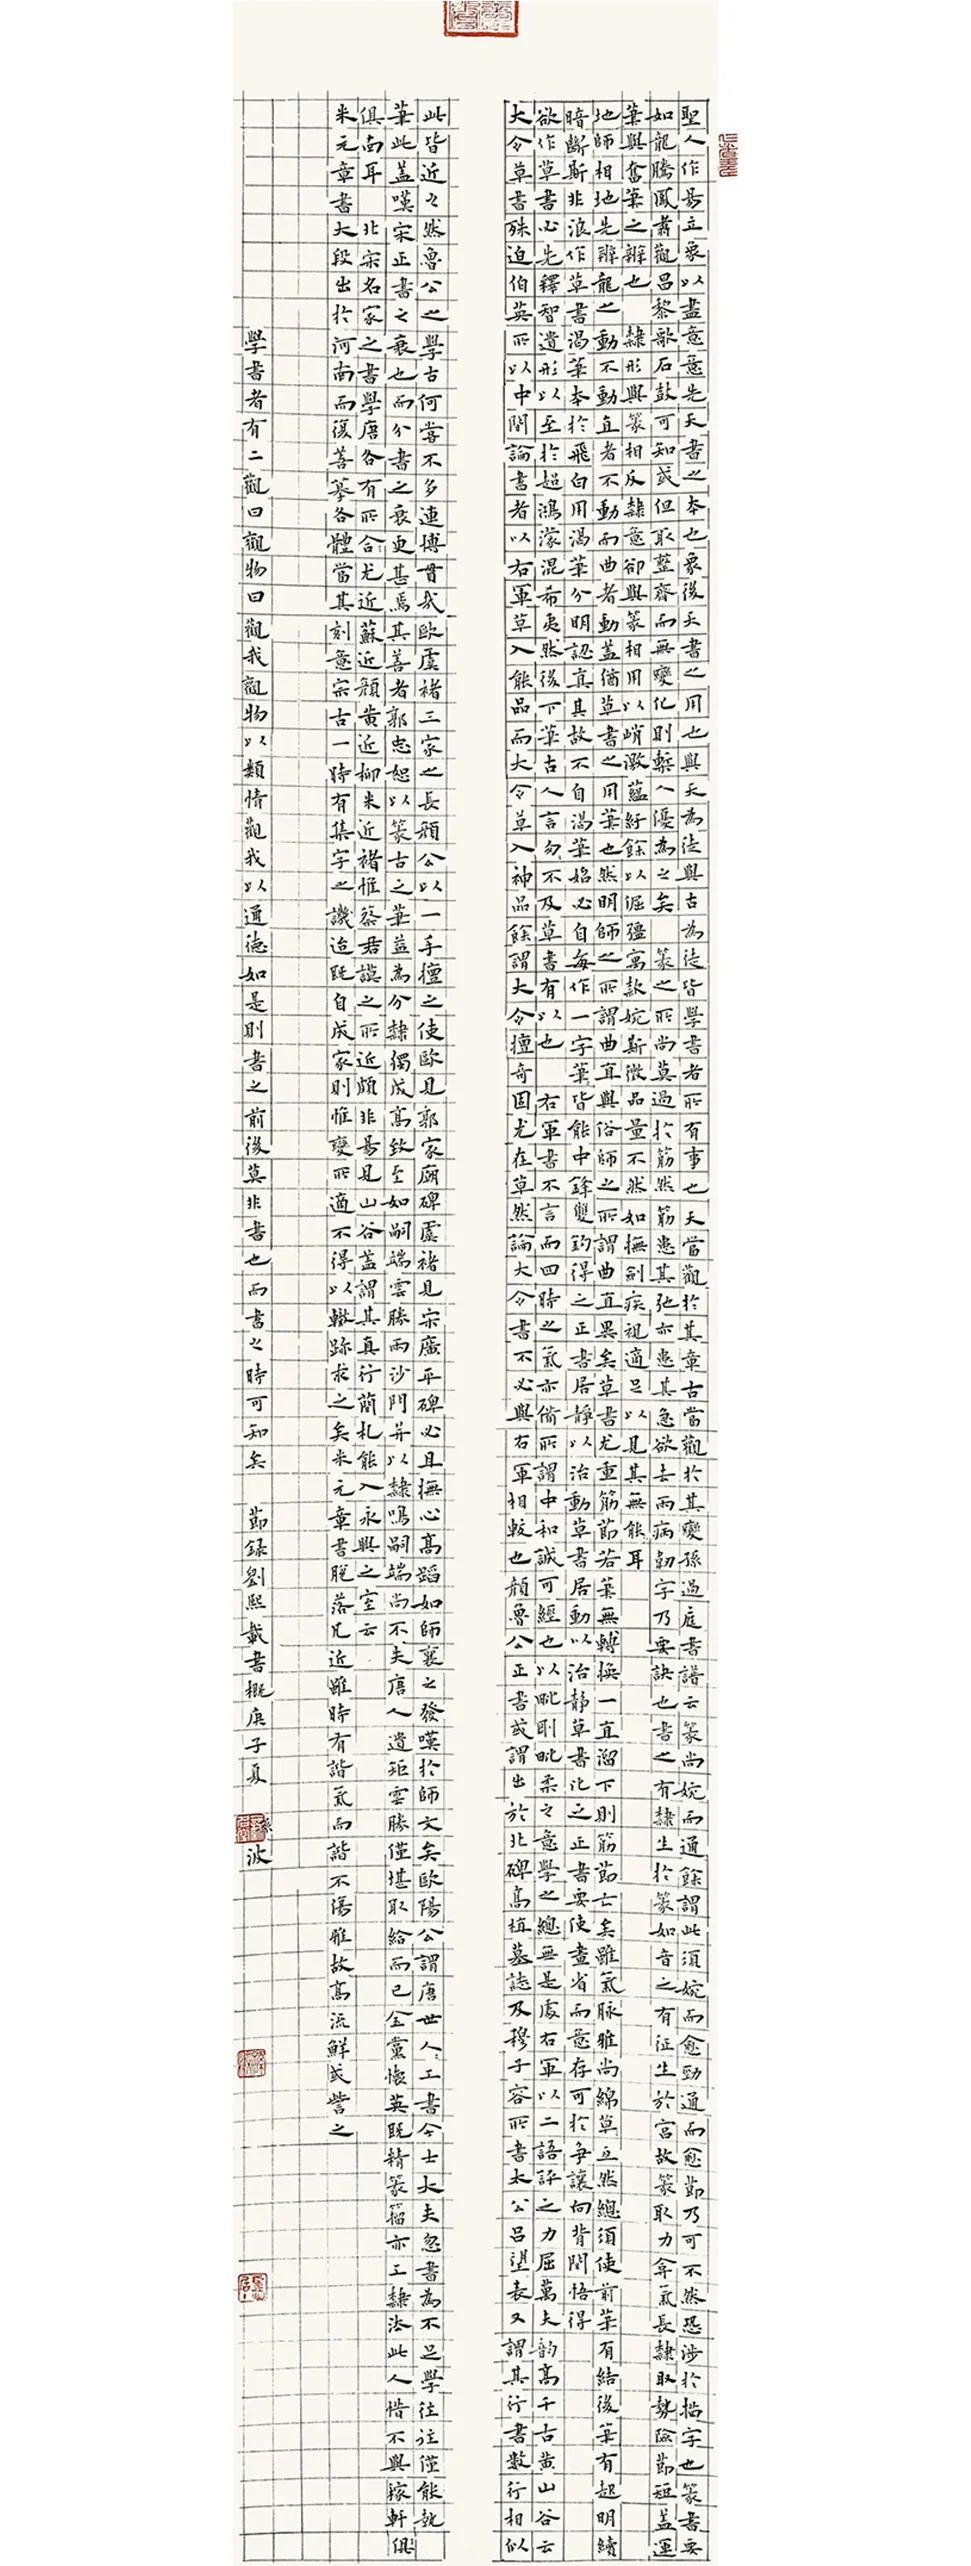 聖人作易立象以盡意意先天書之本也象後天書之用也與天為徒與古為徒皆學書者所有事也天當觀於其章古當觀於其變孫過庭書譜云篆尚婉而通餘謂此須婉而愈勁通而愈節乃可不然恐涉於描字也篆書要
如龍騰鳳翥觀昌黎歌石鼓可知或但取整齊而無變化則槧人優為之矣 篆之所尚莫過於筋然筋患其弛亦患其急欲去兩病韌字乃要訣也書之有隸生於篆如音之有征生於宮故篆取力弇氣長隸取勢險節短蓋運
筆與奮筆之辨也 隸形與篆相反隸意卻與篆相用以峭激蘊紆餘以倔彊寓款婉斯徵品量不然如撫劍疾視適足以見其無能耳
地師相地先辨龍之動不動直者不動而曲者動蓋猶草書之用筆也然明師之所謂曲直與俗師之所謂曲直異矣草書尤重筋節若筆無轉換一直溜下則筋節亡矣雖氣脉雅尚綿亙然總須使前筆有結後筆有起明續
暗斷斯非浪作草書渴筆本於飛白用渴筆分明認真其故不自渴筆始必自每作一字筆皆能中鋒雙鉤得之正書居靜以治動草書居動以治靜草書比之正書要使畫省而意存可於爭讓向背間悟得
欲作草書必先釋智遺形以至於超鴻濛混希夷然後下筆古人言匆不及草書有以也 右軍書不言而四時之氣亦備所謂中和誠可經也以毗剛毗柔之意學之總無是處右軍以二語評之力屈萬夫韵高千古黄山谷云
大令草書殊迫伯英所以中間論書者以右軍草入能品而大令草入神品餘謂大令擅奇固尤在草然論大令書不必與右軍相較也顏魯公正書或謂出於北碑高植墓誌及穆子容所書太公吕望表又謂其行書數行相似
此皆近之然魯公之學古何嘗不多連博貫哉歐虞褚三家之長顏公以一手擅之使歐見郭家廟碑虞褚見宋廣平碑必且撫心高蹈如師襄之發嘆於師文矣歐陽公謂唐世人人工書今士大夫忽書為不足學往往僅能執
筆此蓋嘆宋正書之衰也而分書之衰更甚焉其善者郭忠恕以篆古之筆益為分隸獨成高致至如嗣端雲勝兩沙門并以隸鳴嗣端尚不失唐人遺矩雲勝僅堪取給而已金黨懷英既精篆籀亦工隸法此人惜不與稼軒俱
俱南耳 北宋名家之書學唐各有所合尤近蘇近顏黄近柳米近褚惟蔡君謨之所近頗非易見山谷蓋謂其真行簡札能入永興之室云
米元章書大段出於河南而復善摹各體當其刻意宗古一時有集字之譏迨既自成家則惟變所適不得以轍跡求之矣米元章書脫落凡近雖時有諧氣而諧不傷雅故高流鮮或訾之
學書者有二觀曰觀物曰觀我觀物以類情觀我以通德如是則書之前後莫非書也而書之時可知矣 節錄劉熙載書概庚子夏 波